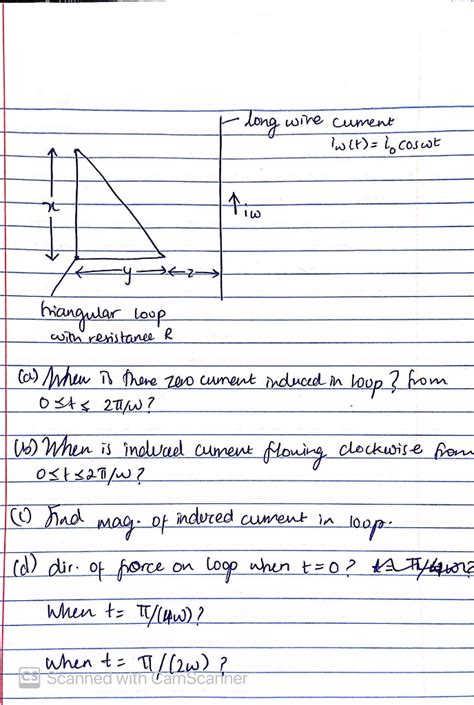 long wire current
iw(t) = i₀ cosωt
x
↑ iw
y
z
triangular loop
with resistance R
(a) When is there zero current induced in loop? from
0 ≤ t ≤ 2π/ω?
(b) When is induced current flowing clockwise from
0 ≤ t ≤ 2π/ω?
(c) Find mag. of induced current in loop.
(d) dir. of force on loop when t=0?
When t= π/(4ω)?
when t= π/(2ω)?
CS Scanned with CamScanner